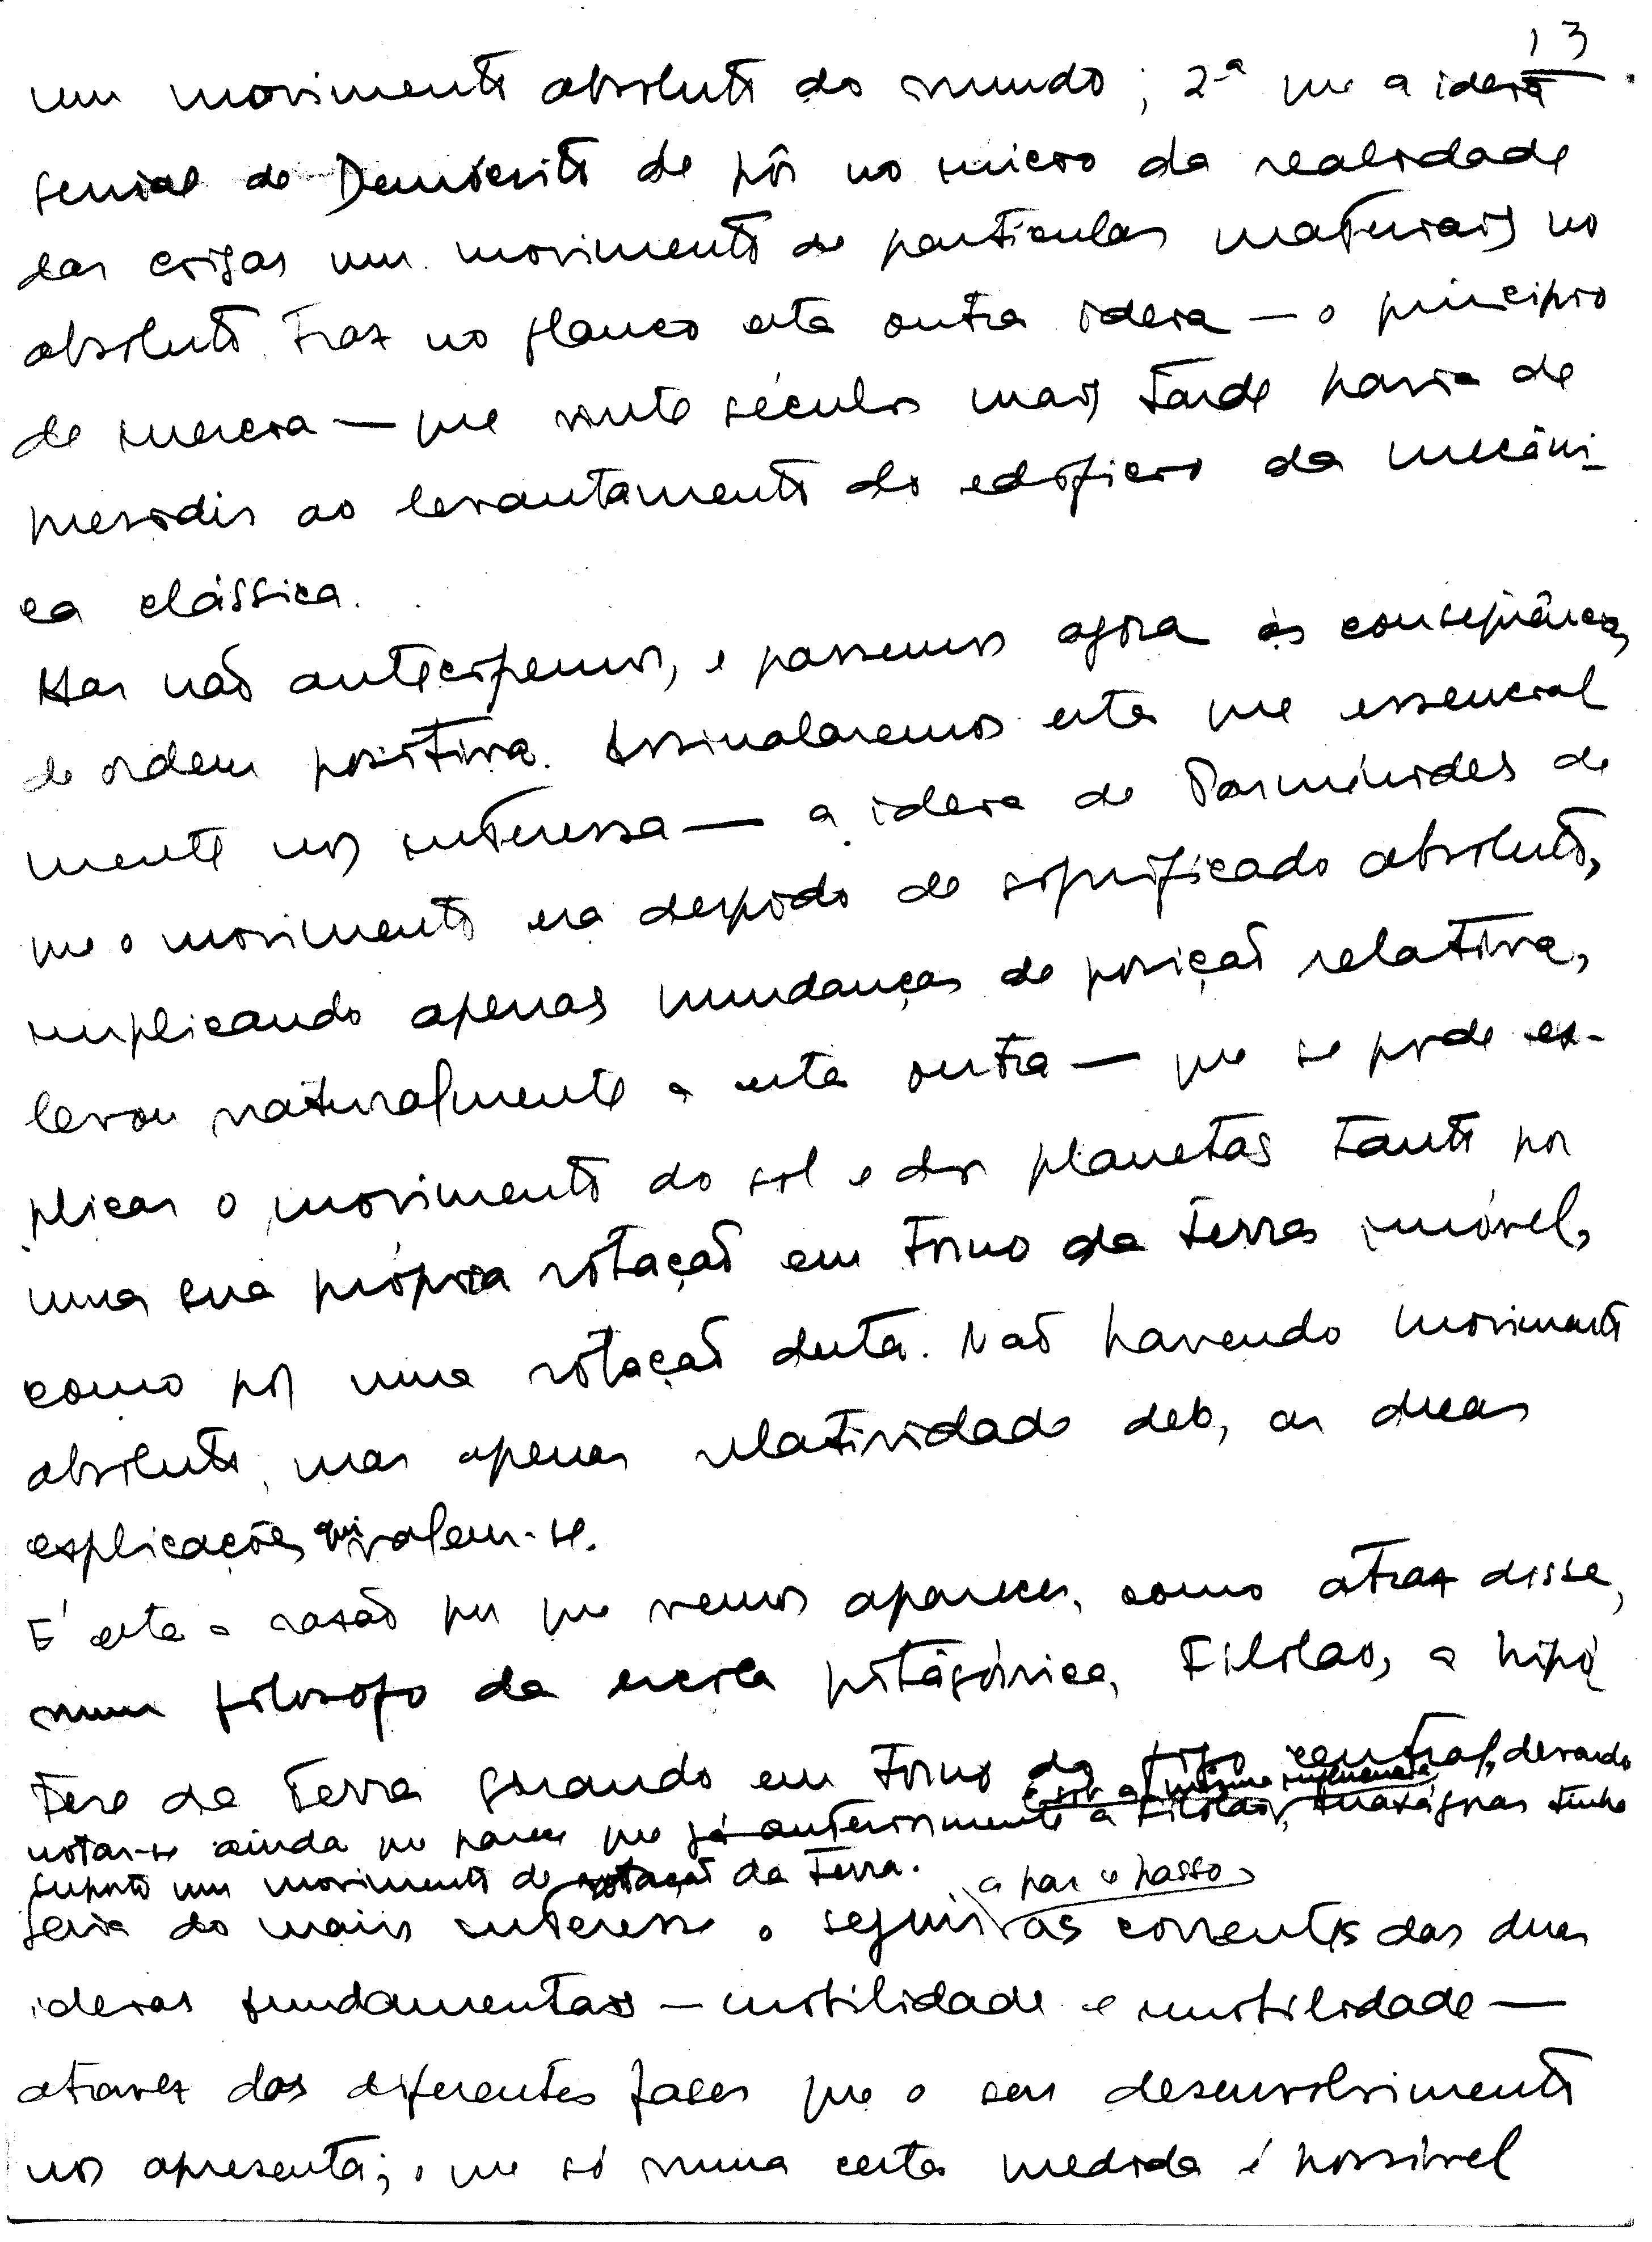 13
um movimento absoluto do mundo; 2.ª que a ideia
genial de Demócrito de pôr no início da realidade
das coisas um movimento de partículas materiais no
absoluto traz no flanco esta outra ideia — o princípio
de inercia — que vinte séculos mais tarde havia de
presidir ao levantamento do edifício da mecâni-
ca clássica.
Mas não antecipemos, e passemos agora às consequências
de ordem positiva. Assinalaremos esta que essencial
mente nos interessa — a ideia de Parménides de
que o movimento era despido de significado absoluto,
implicando apenas mudanças de posição relativa,
levou naturalmente a esta outra — que se pode ex-
plicar o movimento do sol e dos planetas tanto por
uma sua própria rotação em torno da terra imóvel,
como por uma rotação desta. Não havendo movimento
absoluto, mas apenas relatividade dele, as duas
explicações equivalem-se.
É esta a razão por que vemos aparecer, como atraz disse,
num filosofo da escola pitagórica, Filolao, a hipó
tese da Terra girando em torno do fogo central, devendo
sob a mesma influencia
notar-se ainda que parece que já anteriormente a Filolao, Anaxágoras tinha
suposto um movimento de rotação da Terra.
a par e passo
Seria do maior interesse o seguir as correntes das duas
ideias fundamentais — mobilidade e imobilidade —
atravez das diferentes fases que o seu desenvolvimento
nos apresenta; o que só numa certa medida é possível